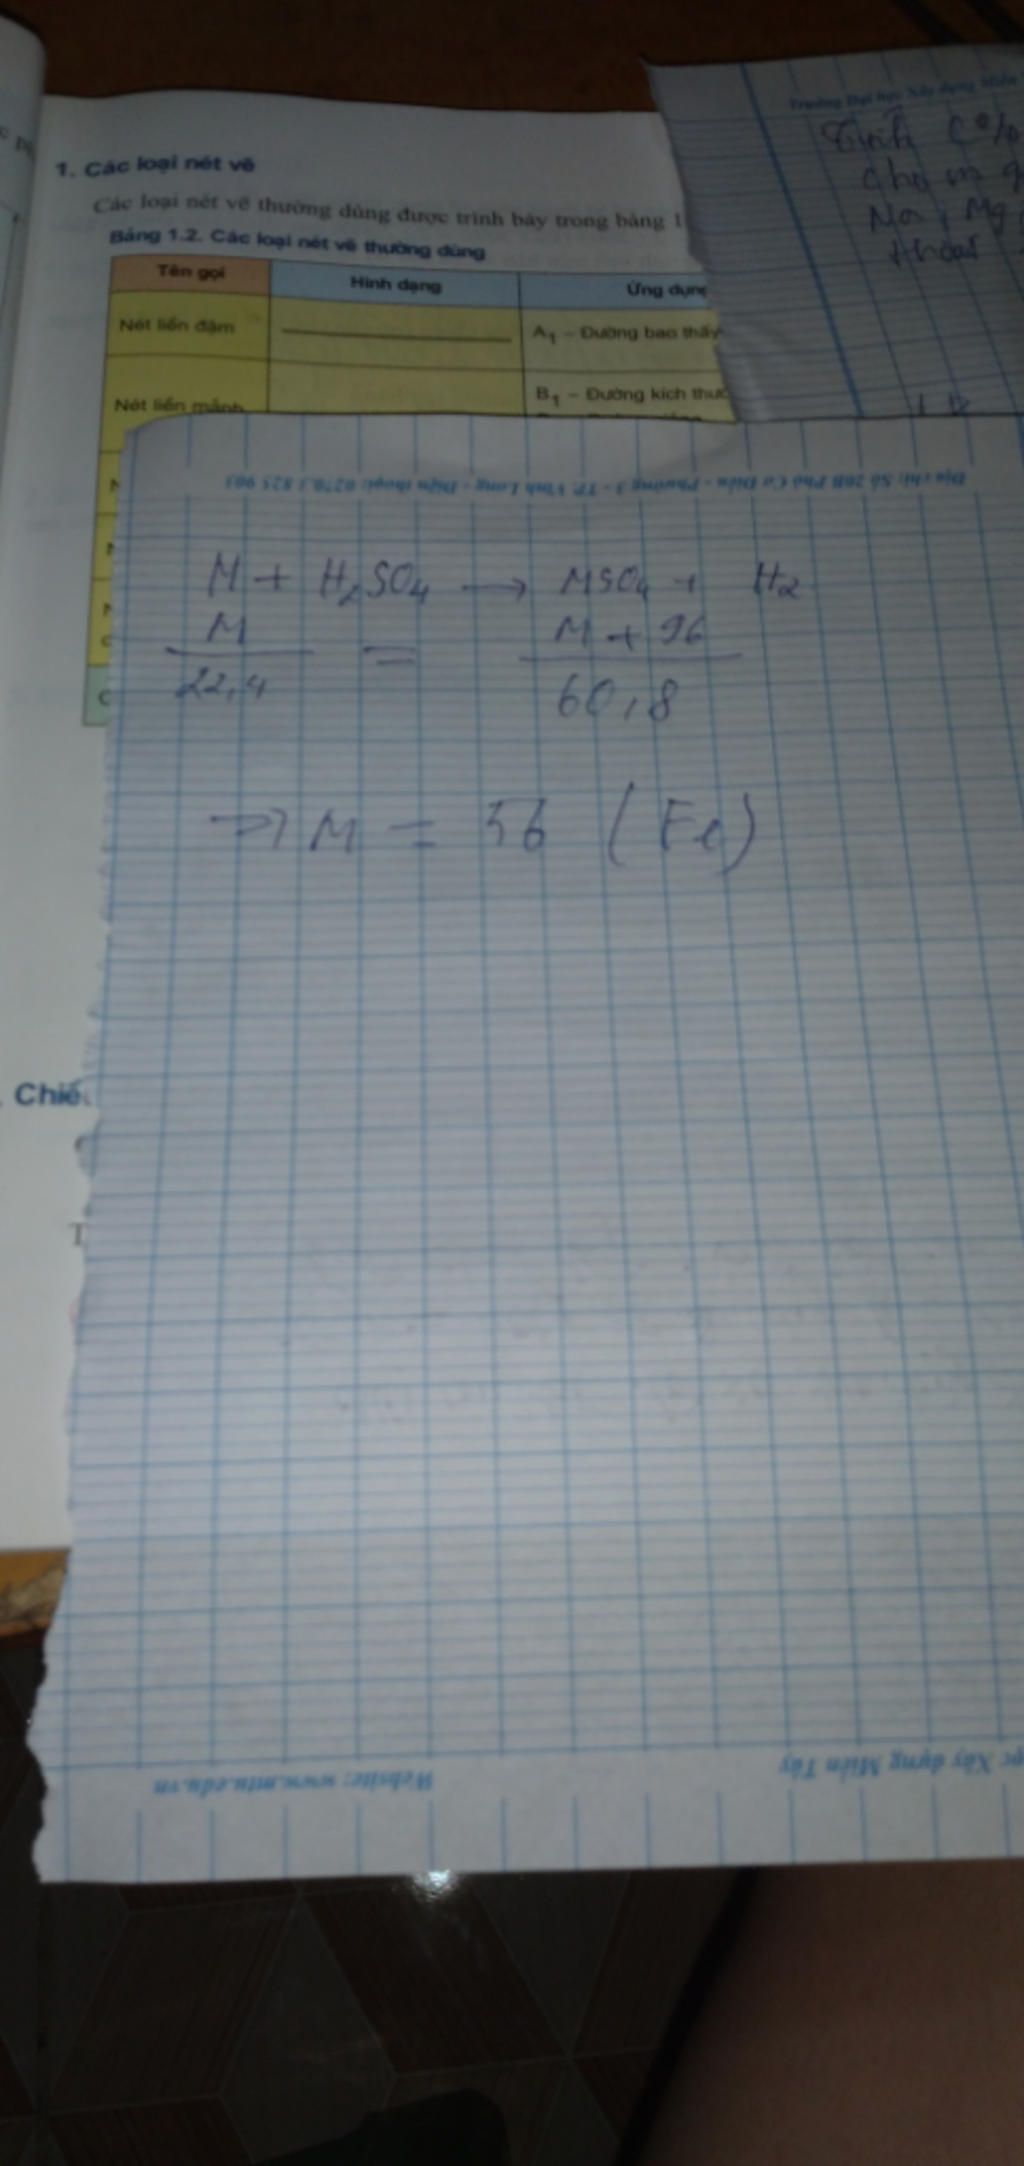 1. Các loại nét vẽ
Các loại nét vẽ thường dùng được trình bày trong bảng 1
Bảng 1.2. Các loại nét vẽ thường dùng
Tên gọi
Hình dạng
Ứng dụng
Nét liền đậm
A1 – Đường bao thấy
Nét liền mảnh
B1 – Đường kích thước
Trường Đại học Xây dựng Miền
Tính C%
cho m g
Na, Mg
thoát
Địa chỉ: Số 20B Phó Cơ Điều - Phường 3 - TP. Vĩnh Long - Điện thoại: 0270.3 825 903
M + H2SO4 → MSO4 + H2
M = M + 96
22,4 60,8
=> M = 56 (Fe)
Chiế
T
Website: www.mtu.edu.vn
ọc Xây dựng Miền Tây